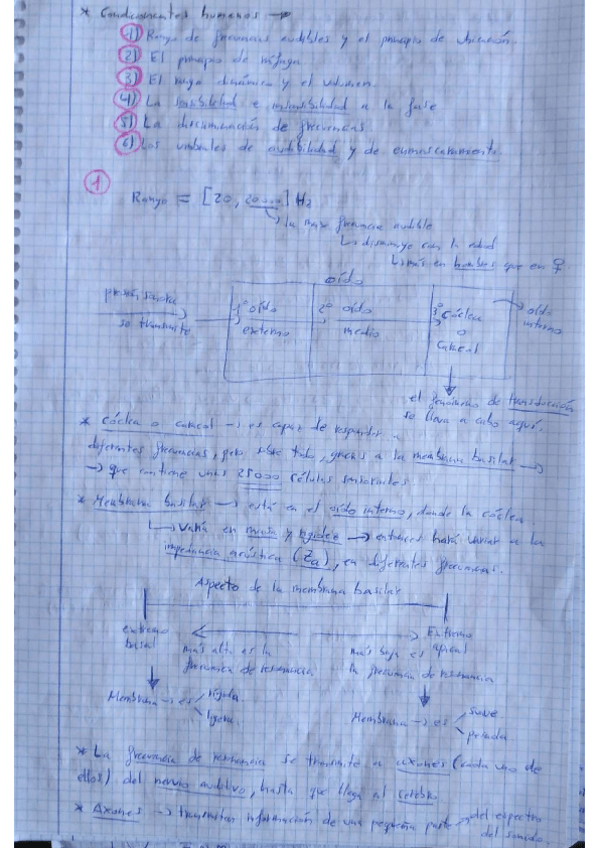 * Condicionantes humanos →
1) Rango de frecuencias audibles y el principio de ubicación.
2) El principio de
3) El rango dinámico y el volumen.
4) La sensibilidad e insensibilidad a la fase
5) La discriminación de frecuencias
6) Los umbrales de audibilidad y de enmascaramiento.
1
Rango = [20, 20000] Hz
la max frecuencia audible
↳ disminuye con la edad
↳ más en hombres que en ♀
oído
presión sonora
se transmite
1º oído externo
2º oído medio
3º cóclea o caracol
oído interno
el fenómeno de transducción
se lleva a cabo aquí.
* Cóclea o caracol → es capaz de responder a
diferentes frecuencias, pero sobre todo, gracias a la membrana basilar →
→ que contiene unas 25000 células sensoriales
* Membrana basilar → está en el oído interno, donde la cóclea
↳ varía en masa y rigidez → entonces hará variar a la
impedancia acústica (Za), en diferentes frecuencias.
Aspecto de la membrana basilar
extremo basal
más alta es la
frecuencia de resonancia
Extremo apical
más baja es
la frecuencia de resonancia
Membrana → es
rígida.
ligera.
Membrana → es
suave.
pesada
* La frecuencia de resonancia se transmite a axones (cada uno de
ellos) del nervio auditivo, hasta que llega al cerebro
* Axones → transmiten información de una pequeña parte → del espectro
del sonido.